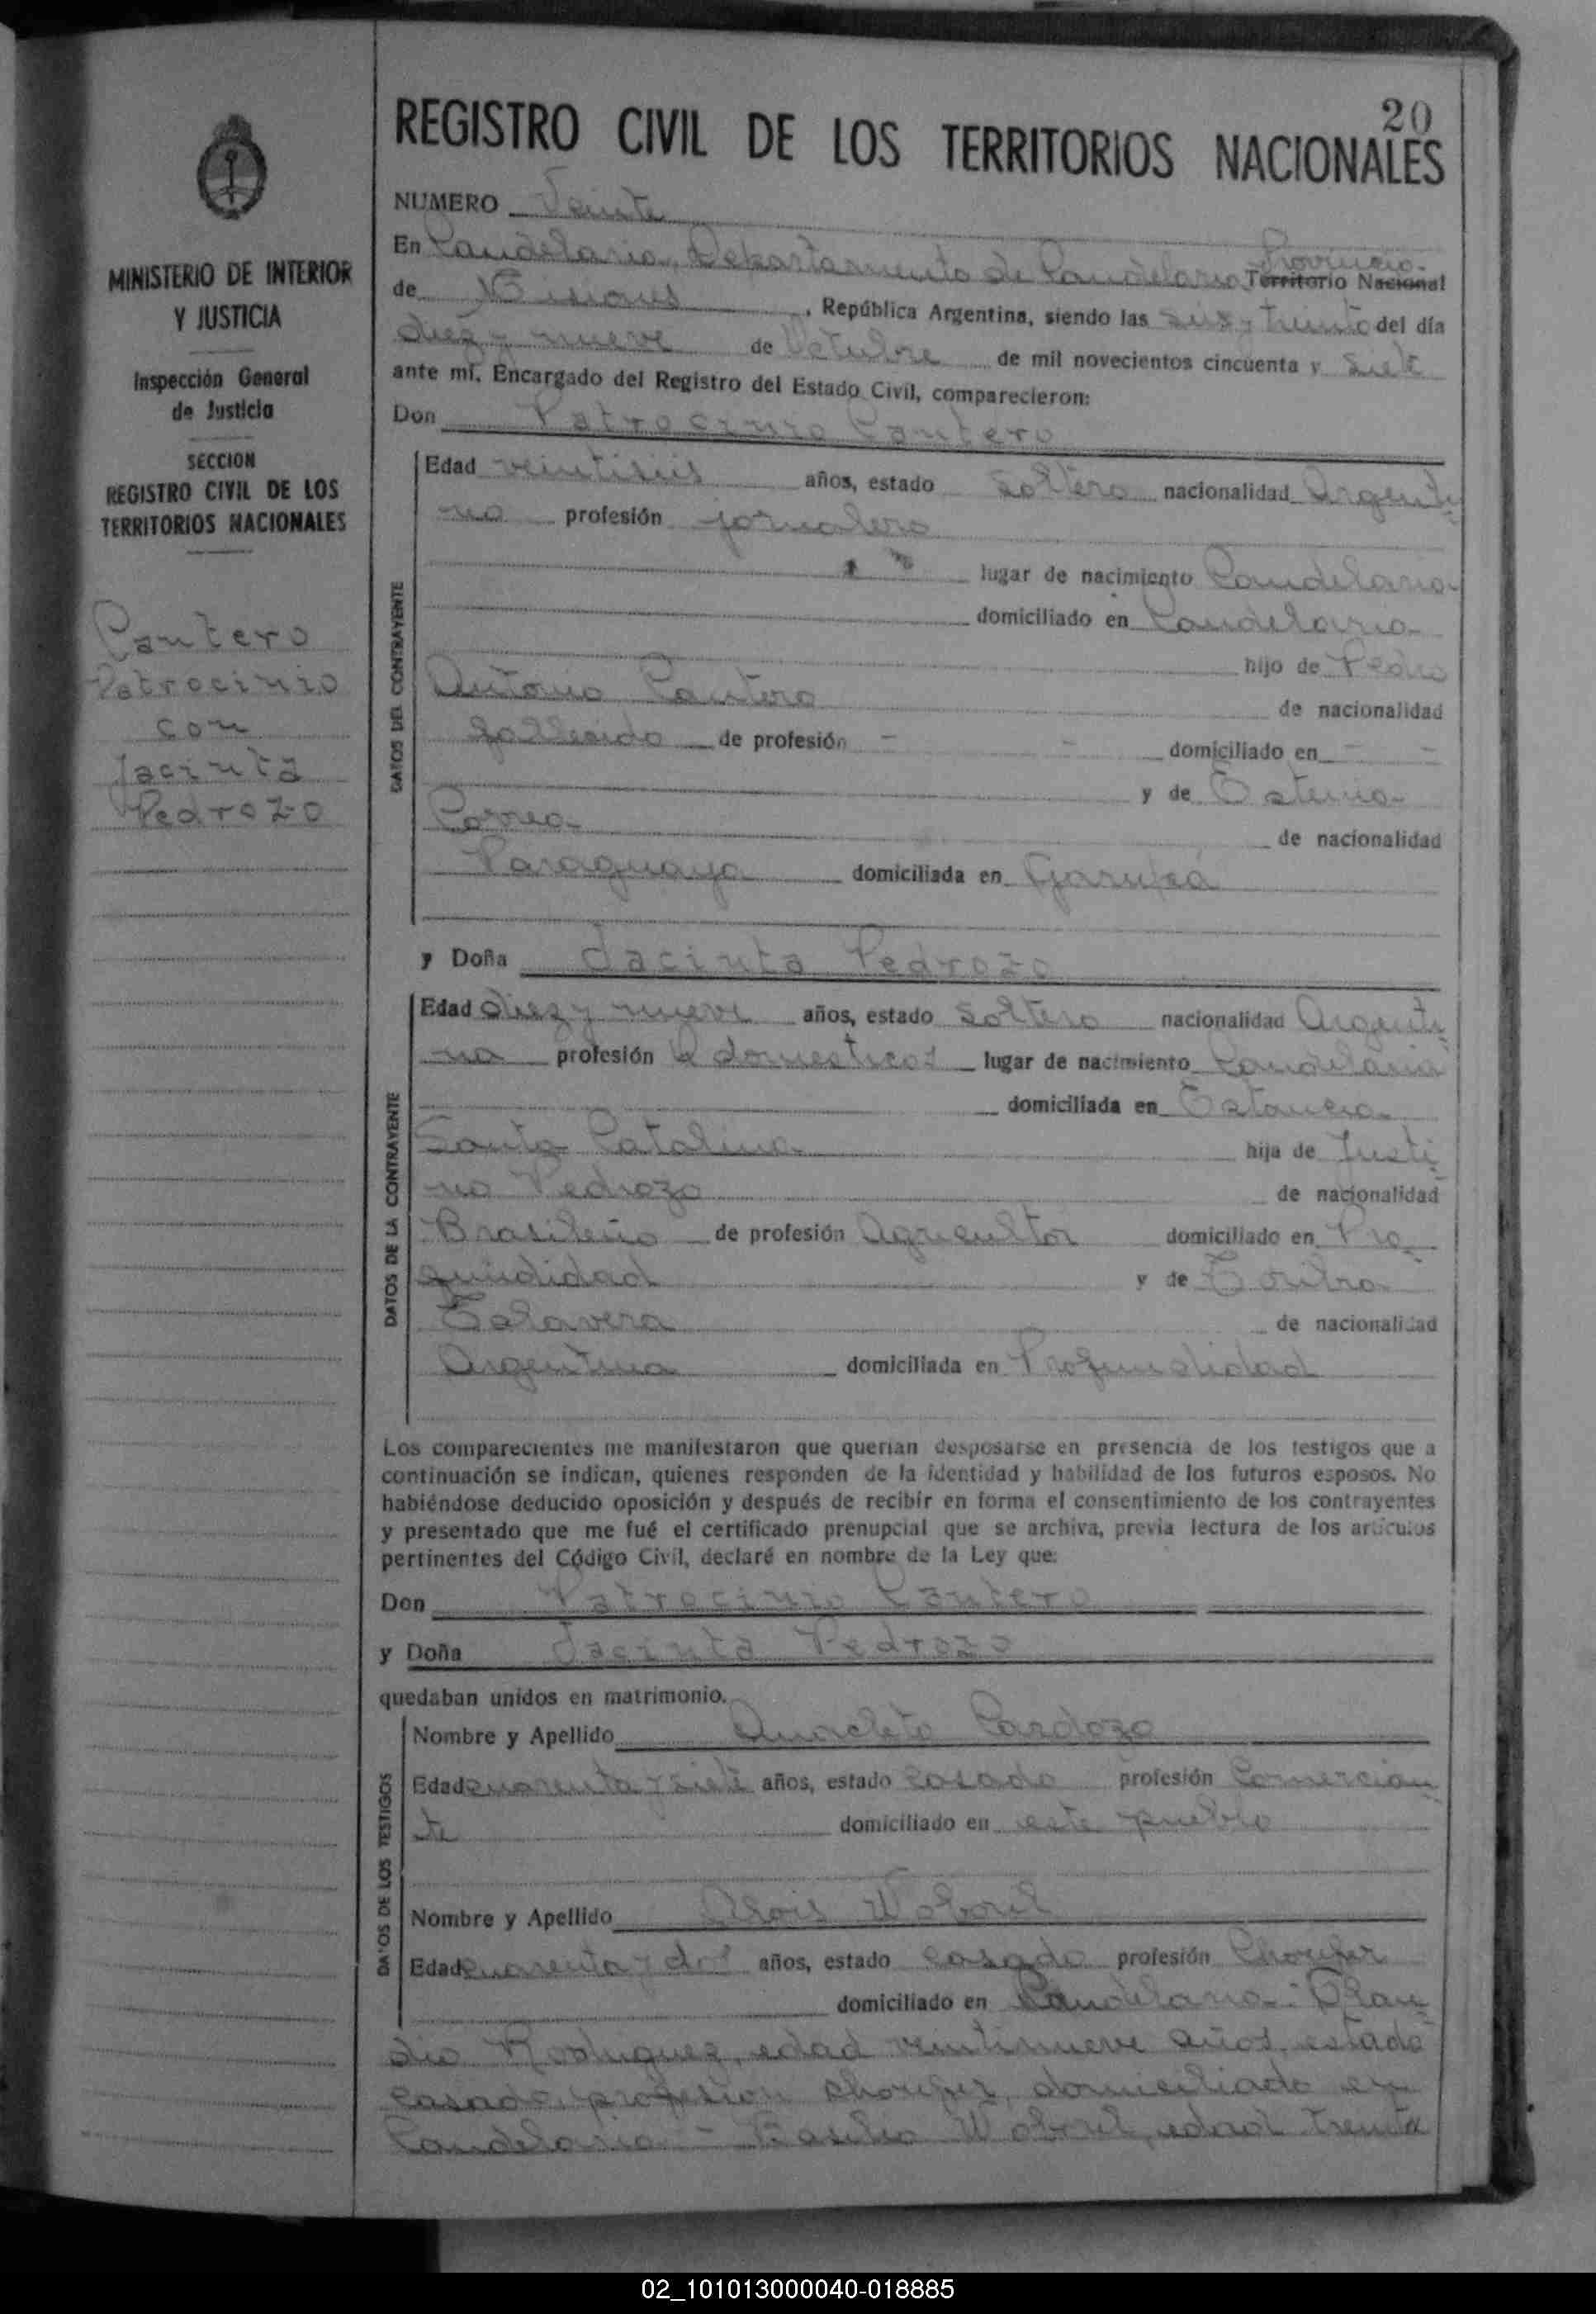 20
REGISTRO CIVIL DE LOS TERRITORIOS NACIONALES
MINISTERIO DE INTERIOR
Y JUSTICIA
Inspección General
de Justicia
SECCION
REGISTRO CIVIL DE LOS
TERRITORIOS NACIONALES
Cantero
Patrocinio
con
Jacinta
Pedrozo
NUMERO Veinte
Provincia
En Candelaria, Departamento de Candelaria Territorio Nacional
de Misiones, República Argentina, siendo las seis y treinta del día
diez y nueve de Octubre de mil novecientos cincuenta y siete
ante mí, Encargado del Registro del Estado Civil, comparecieron:
Don Patrocinio Cantero
DATOS DEL CONTRAYENTE
Edad veintiseis años, estado soltero nacionalidad Argenti
no profesión jornalero
lugar de nacimiento Candelaria
domiciliado en Candelaria
hijo de Pedro
Antonio Cantero de nacionalidad
fallecido de profesión - - domiciliado en - -
y de
Correa de nacionalidad
Paraguaya domiciliada en Garupá
y Doña Jacinta Pedrozo
DATOS DE LA CONTRAYENTE
Edad diez y nueve años, estado soltera nacionalidad Argenti
na profesión Q domesticos lugar de nacimiento Candelaria
domiciliada en Estancia
Santa Catalina hija de Justi
no Pedrozo de nacionalidad
Brasileño de profesión Agricultor domiciliado en Pro
fundidad y de
de nacionalidad
Argentina domiciliada en Profundidad
Los comparecientes me manifestaron que querían desposarse en presencia de los testigos que a
continuación se indican, quienes responden de la identidad y habilidad de los futuros esposos. No
habiéndose deducido oposición y después de recibir en forma el consentimiento de los contrayentes
y presentado que me fué el certificado prenupcial que se archiva, previa lectura de los artículos
pertinentes del Código Civil, declaré en nombre de la Ley que:
Don Patrocinio Cantero
y Doña Jacinta Pedrozo
quedaban unidos en matrimonio.
DATOS DE LOS TESTIGOS
Nombre y Apellido Anacleto Cardozo
Edad cuarenta y siete años, estado casado profesión Comercian
te domiciliado en este pueblo
Nombre y Apellido Alois Woboril
Edad cuarenta y dos años, estado casado profesión Choufer
domiciliado en Candelaria - Olan
dio Rodriguez, edad veintinueve años, estado
casado, profesion choufer, domiciliado en
Candelaria - Basilio Woboril, edad treinta
02_101013000040-018885